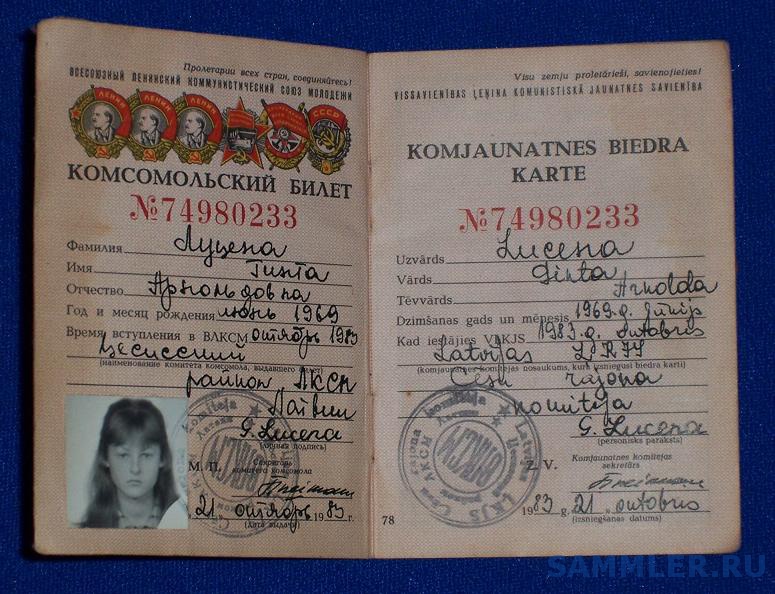 Пролетарии всех стран, соединяйтесь!
ВСЕСОЮЗНЫЙ ЛЕНИНСКИЙ КОММУНИСТИЧЕСКИЙ СОЮЗ МОЛОДЕЖИ
ЛЕНИН ЛЕНИН ЛЕНИН СССР
КОМСОМОЛЬСКИЙ БИЛЕТ
№74980233
Фамилия Луцена
Имя Гинта
Отчество Арнольдовна
Год и месяц рождения июнь 1969
Время вступления в ВЛКСМ октябрь 1983
Цесисский
(наименование комитета комсомола, выдавшего билет)
райком ЛКСМ
Латвии
G. Lucena
(личная подпись)
М. П. Секретарь
комитета комсомола
„21" октябрь 1983 г.
(дата выдачи)
Visu zemju proletārieši, savienojieties!
VISSAVIENĪBAS ĻEŅINA KOMUNISTISKĀ JAUNATNES SAVIENĪBA
KOMJAUNATNES BIEDRA
KARTE
№74980233
Uzvārds Lucena
Vārds Ginta
Tēvvārds Arnolda
Dzimšanas gads un mēnesis 1969.g. jūnijs
Kad iestājies VĻKJS 1983.g. oktobris
Latvijas ĻKJS
(komjaunatnes komitejas nosaukums, kura izsniegusi biedra karti)
Cēsu rajona
komiteja
G. Lucena
(personisks paraksts)
Z. V. Komjaunatnes komitejas
sekretārs
1983. g. „21" oktobris
(izsniegšanas datums)
78
SAMMLER.RU